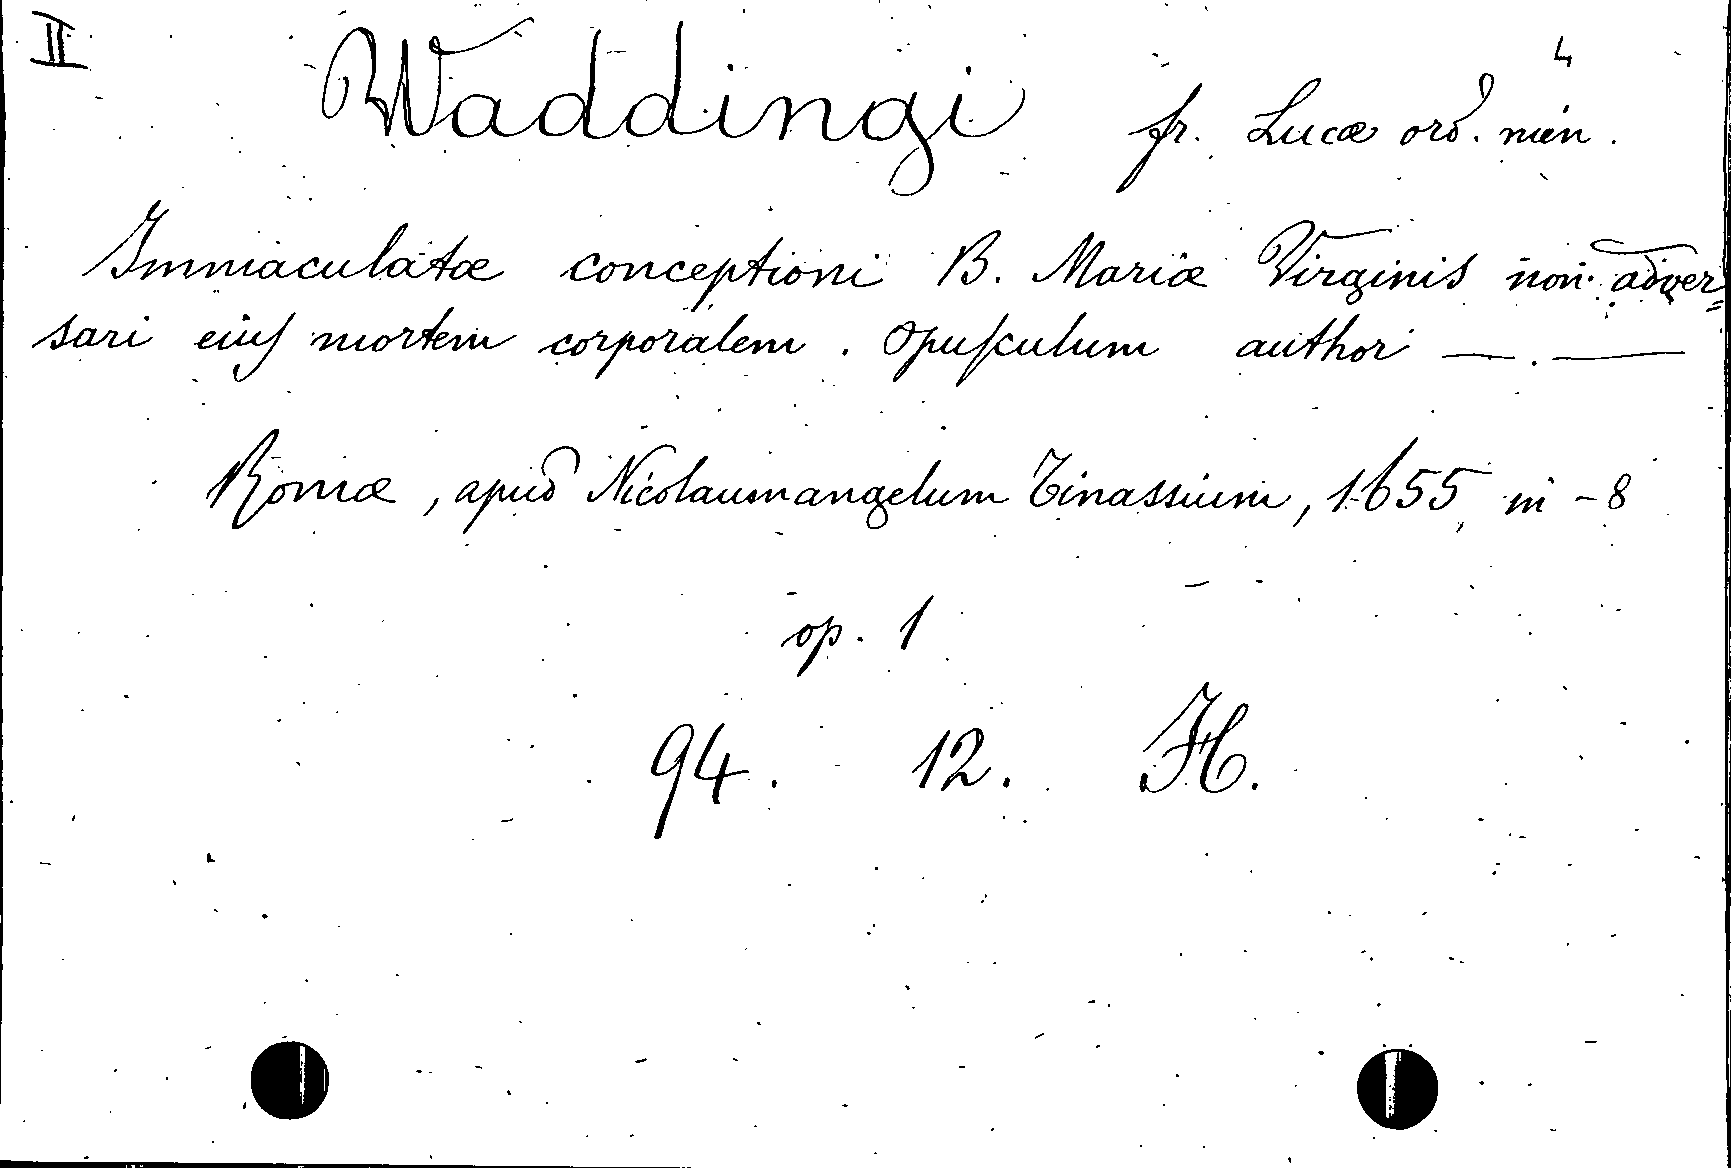 II
4
Waddingi fr. Lucæ ord. min.
Immaculatæ conceptioni B. Mariæ Virginis non adver=
sari eius mortem corporalem. Opusculum author —.—
Romæ, apud Nicolaumangelum Tinassium, 1655, in -8
op. 1
94. 12. H.